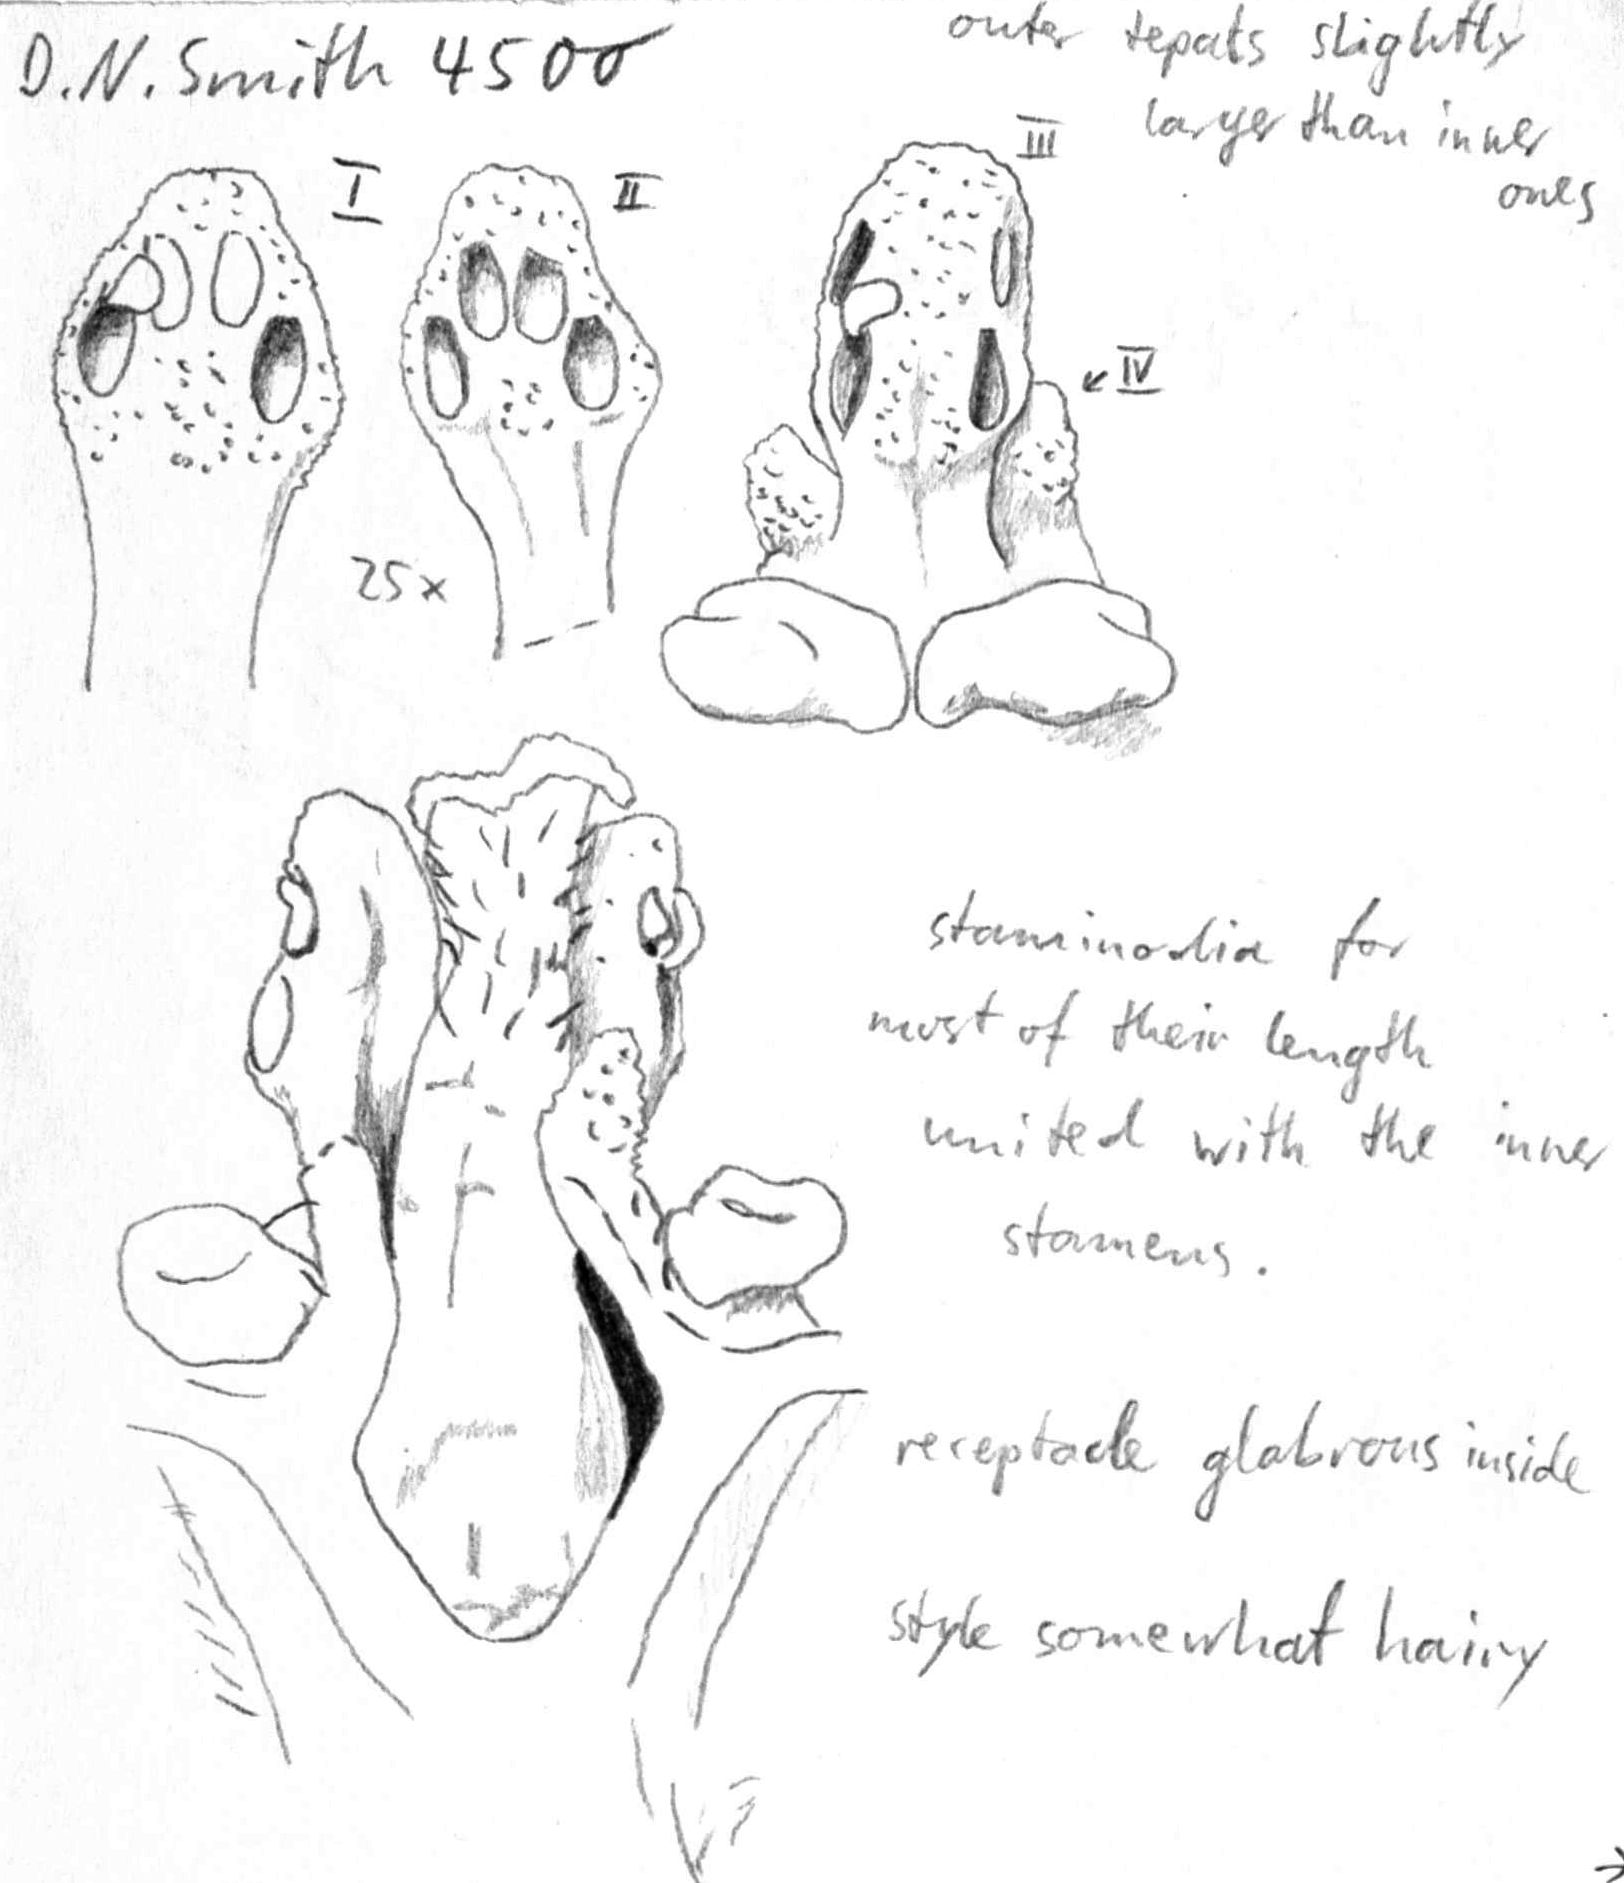 D.N. Smith 4500
outer tepals slightly
larger than inner
ones
I
II
III
IV
25x
staminodia for
most of their length
united with the inner
stamens.
receptacle glabrous inside
style somewhat hairy